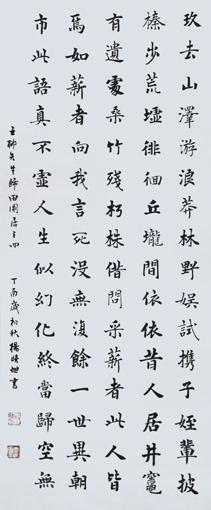 玖去山澤游浪莽林野娛試携子姪輩披
榛步荒墟徘徊丘壠間依依昔人居井竈
有遺處桑竹殘朽株借問采薪者此人皆
焉如薪者向我言死沒無復餘一世異朝
市此語真不虛人生似幻化終當歸空無
五柳先生歸田園居之四
丁酉歲初秋楊晴書